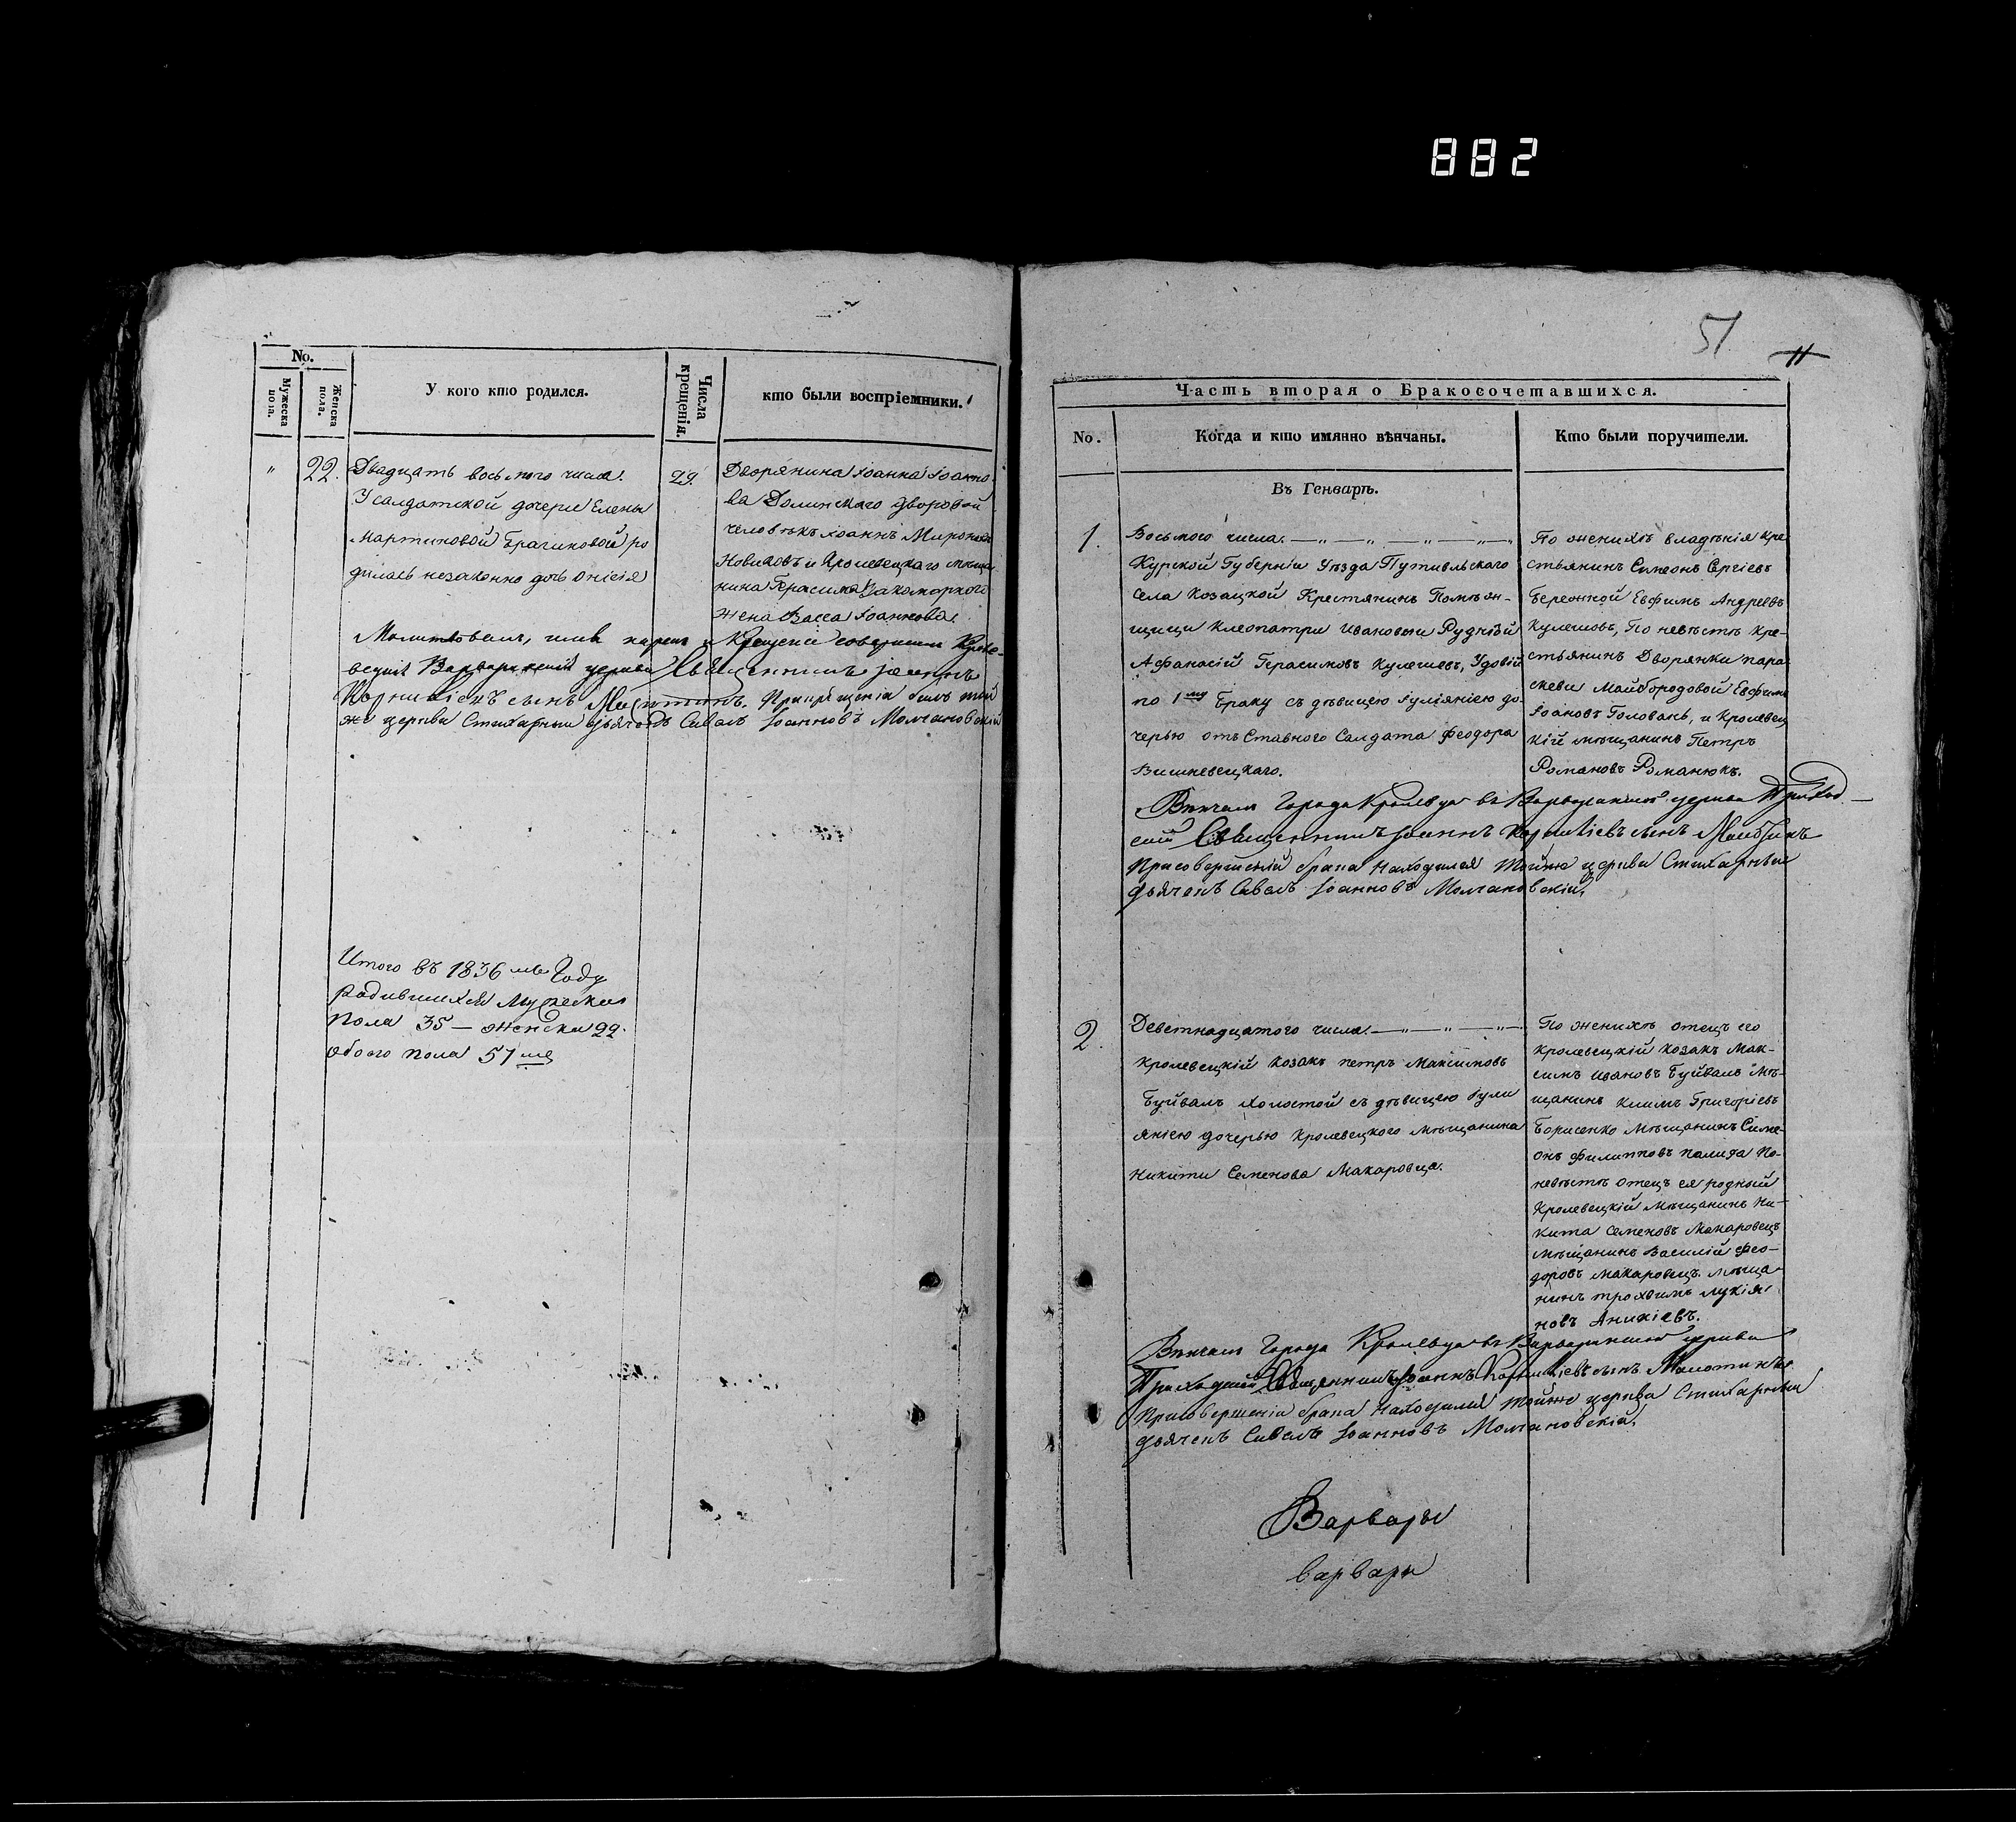 882
No.
Мужеска пола.
Женска пола.
У кого кто родился.
Числа крещенія.
кто были воспріемники.
" 22.
Двадцать восьмого числа.
У салдатской дочери Елены
Мартиновой Брагиновой ро
дилась незаконно дочь Онисія
29.
Дворянина Іоанна Іоанно
ва Долинскаго дворовой
человѣкъ Іоаннъ Миронов
Новиковъ и Кролевецкаго мѣща
нина Герасима Закоморного
жена Васса Іоаннова.
Молитвовалъ, имя нарекъ и Крещеніе совершилъ Кроле-
вецкой Варваринской церкви Священникъ Іоаннъ
Корниліевъ сынъ При крещеніи былъ той
же церкви Стихарный дьячокъ Савелъ Іоанновъ Молчановскій
Итого въ 1836 мъ Году
родившихся Мужеска
пола 35 — женска 22.
обоего пола 57 мъ
51
11
Часть вторая о Бракосочетавшихся.
No.
Когда и кто имянно вѣнчаны.
Кто были поручители.
Въ Генварѣ.
1.
Восьмого числа. — " — " — " — " — "
Курской Губерніи Уѣзда Путивльскаго
села Козацкой Крестянинъ Помѣѣ-
щици Клеопатри Ивановни Рудиѣвой
Афанасій Герасимовъ Кулешовъ, Удовій
по 1 му Браку съ дѣвицею Іуліяніею до
черью отъ Ставного Салдата Феодора
Вишневецкаго.
По женихѣ владѣнія кре
стьянинъ Симеонъ Сергіевъ
Евфимъ Андреевъ
Кулешовъ, По невѣстѣ кре-
стьянинъ Дворянки пара
скеви Майбородовой Евфимъ
Іоановъ Головань, и Кролевец
кій мѣщанинъ Петръ
Романовъ Романюкъ.
Вѣнчалъ Города Кролевца въ Варваринской церкви Приход
скій Священникъ Іоаннъ Корниліевъ сынъ
При совершеніи брака находился тойже церкви Стихарный
дьячокъ Савелъ Іоанновъ Молчановскій.
2.
Деветнадцатого числа. — " — " — " —
кролевецкій козакъ петръ Максимовъ
Буйвалъ холостой съ дѣвицею Іули
яніею дочерью кролевецкого мѣщанина
Никити Семенова Макаровца.
По женихѣ отецъ его
кролевецкій козакъ Мак-
симъ Ивановъ Буйвалъ Мѣ-
щанинъ Климъ Григоріевъ
Борисенко мѣщанинъ Симе-
онъ Филипповъ Палига По-
невѣстѣ отецъ ея родный
Кролевецкій Мѣщанинъ Ни-
кита Семеновъ Макаровецъ
мѣщанинъ Василій Фео-
доровъ Макаровецъ мѣща-
нинъ трохимъ лукія
новъ Аникіевъ.
Вѣнчалъ Города Кролевца въ Варваринской церкви
Приходскій Священникъ Іоаннъ Корниліевъ сынъ
При совершеніи брака находился тойже церкви Стихарный
дьячокъ Савелъ Іоанновъ Молчановскій.
Варвары
варвары